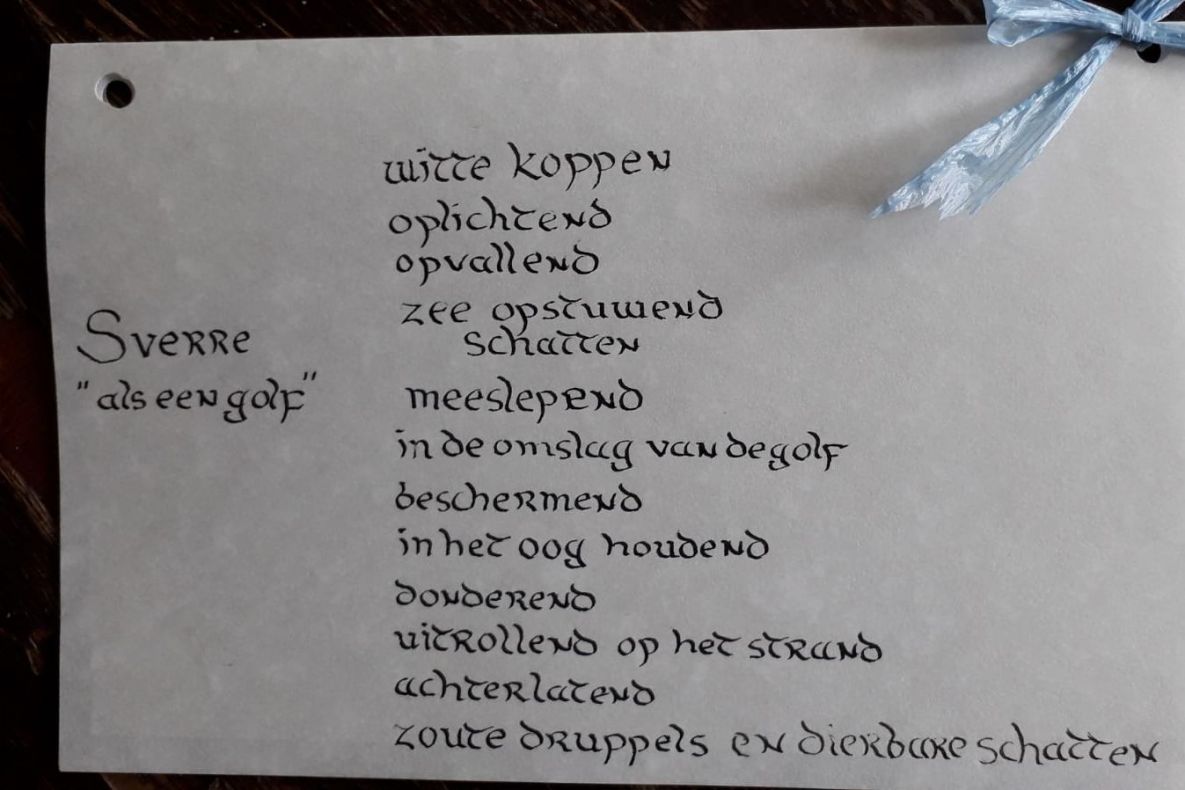 witte koppen
oplichtend
opvallend
zee opstuwend
schatten
meeslepend
in de omslag van de golf
beschermend
in het oog houdend
donderend
uitrollend op het strand
achterlatend
zoute druppels en dierbare schatten
Sverre
"als een golf"